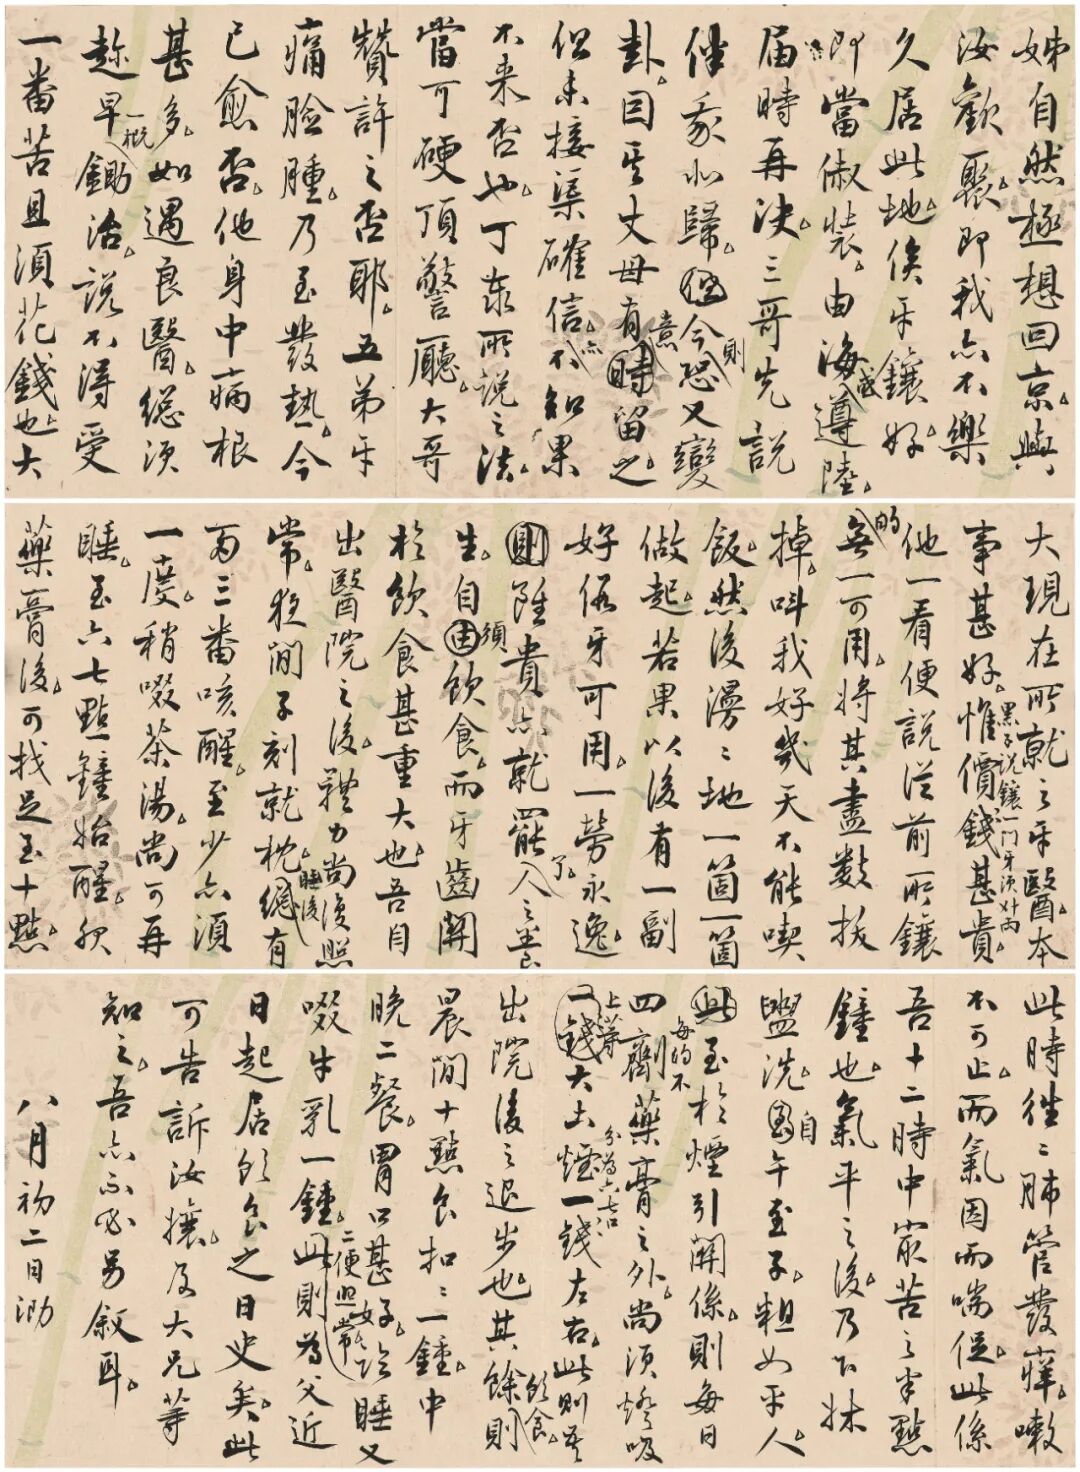 姊自然極想回京與
汝歡聚即我亦不樂
久居此地俟牙鑲好
即當俶裝由海或遵陸
届時再决三哥先説
伴我北歸今則恐又變
卦因其丈母有意留之
但未接渠確信亦不知果
不来否也丁泰所説之法
當可硬頂警廳大哥
贊許之否耶五弟牙
痛臉腫乃至發熱今
已愈否他身中病根
甚多如遇良醫總須
趁早一概鋤治説不得受
一番苦且須花錢也大
大現在所就之牙醫本
事甚好惟價錢甚貴
黑子説鑲一門牙須廿兩
他一看便説從前所鑲的
無一可用將其盡數拔
掉叫我好幾天不能喫
飯然後漫漫地一箇一箇
做起若果以後有一副
好假牙可用一勞永逸
雖貴亦就罷了人之養
生自須飲食而牙齒關
於飲食甚重大也吾自
出醫院之後體力尚復照
常夜間子刻就枕睡後總有
兩三番咳醒至少亦須
一度稍啜茶湯尚可再
睡至六七點鐘始醒服
藥膏後可找足至十點
此時往往肺管發癢嗽
不可止而氣因而喘促此係
吾十二時中最苦之半點
鐘也氣平之後乃下牀
盥洗自午至子粗如平人
至於煙引關係則每日
四劑藥膏之外每約不尚須燈吸
上等大土煙一錢左右分為六七口此則其
出院後之退步也其餘飲食則
晨間十點食扣扣一鍾中
晚二餐胃口甚好臨睡又
啜牛乳一鍾二便照常此則為父近
日起居飲食之日史矣此
可告訴汝攘及大兄等
知之吾亦不必另叙耳
八月初二日泐